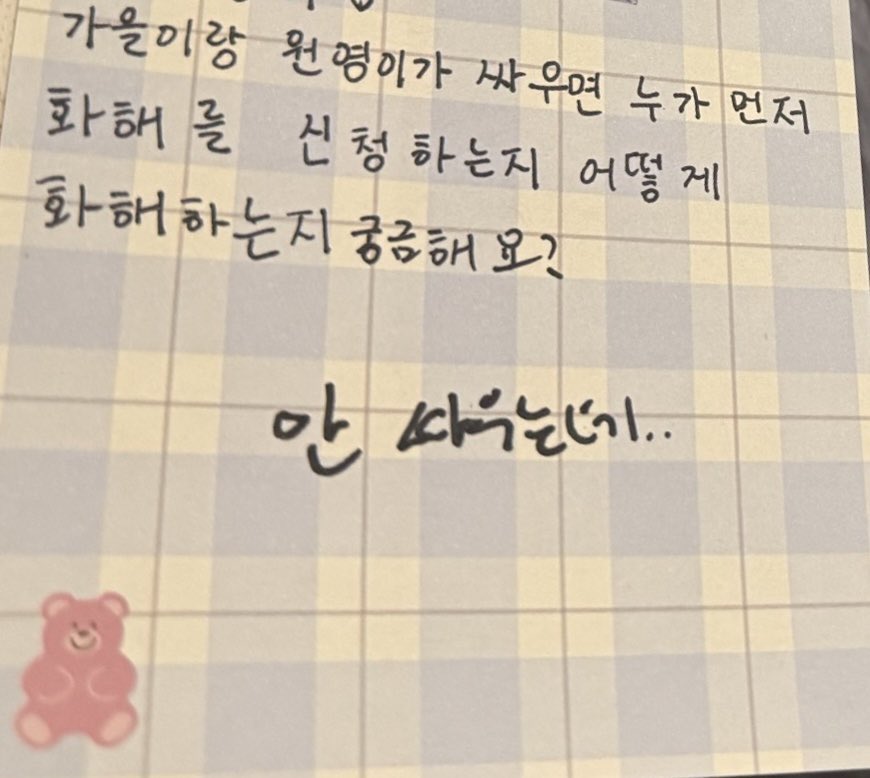 가을이랑 원영이가 싸우면 누가 먼저
화해를 신청하는지 어떻게
화해하는지 궁금해요?
안 싸우는데..